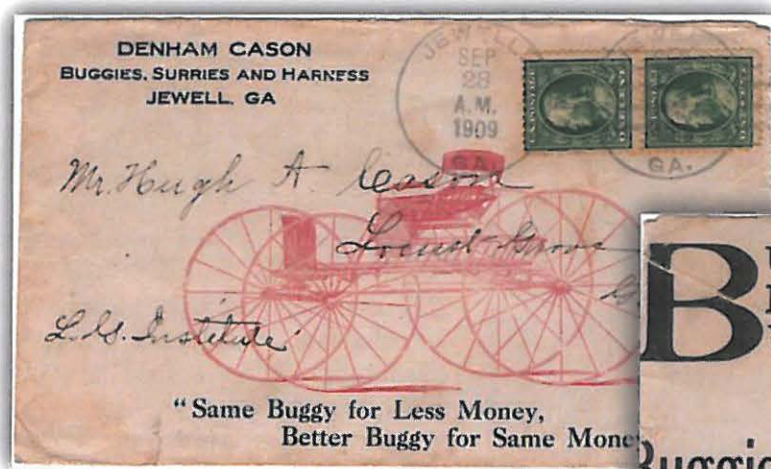 DENHAM CASON
BUGGIES, SURRIES AND HARNESS
JEWELL, GA
JEWELL
SEP
28
A.M.
1909
GA.
GA.
Mr. Hugh A. Cason
Locust Grove
L. G. Institute
"Same Buggy for Less Money,
Better Buggy for Same Mone
B
Buggie